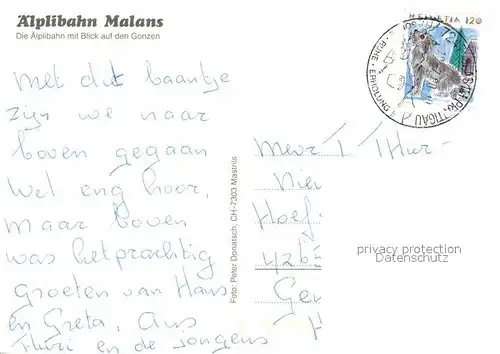 Älplibahn Malans
Die Älplibahn mit Blick auf den Gonzen
met dit baantje
zijn we naar
boven gegaan
Wel eng hoor,
maar boven
was het prachtig
Groeten van Hans
en Greta, Aus
Thuri en de jongens
Foto: Peter Donatsch, CH-7303 Mastrils
HELVETIA 120
RUHE - ERHOLUNG
Hoef
privacy protection
Datenschutz